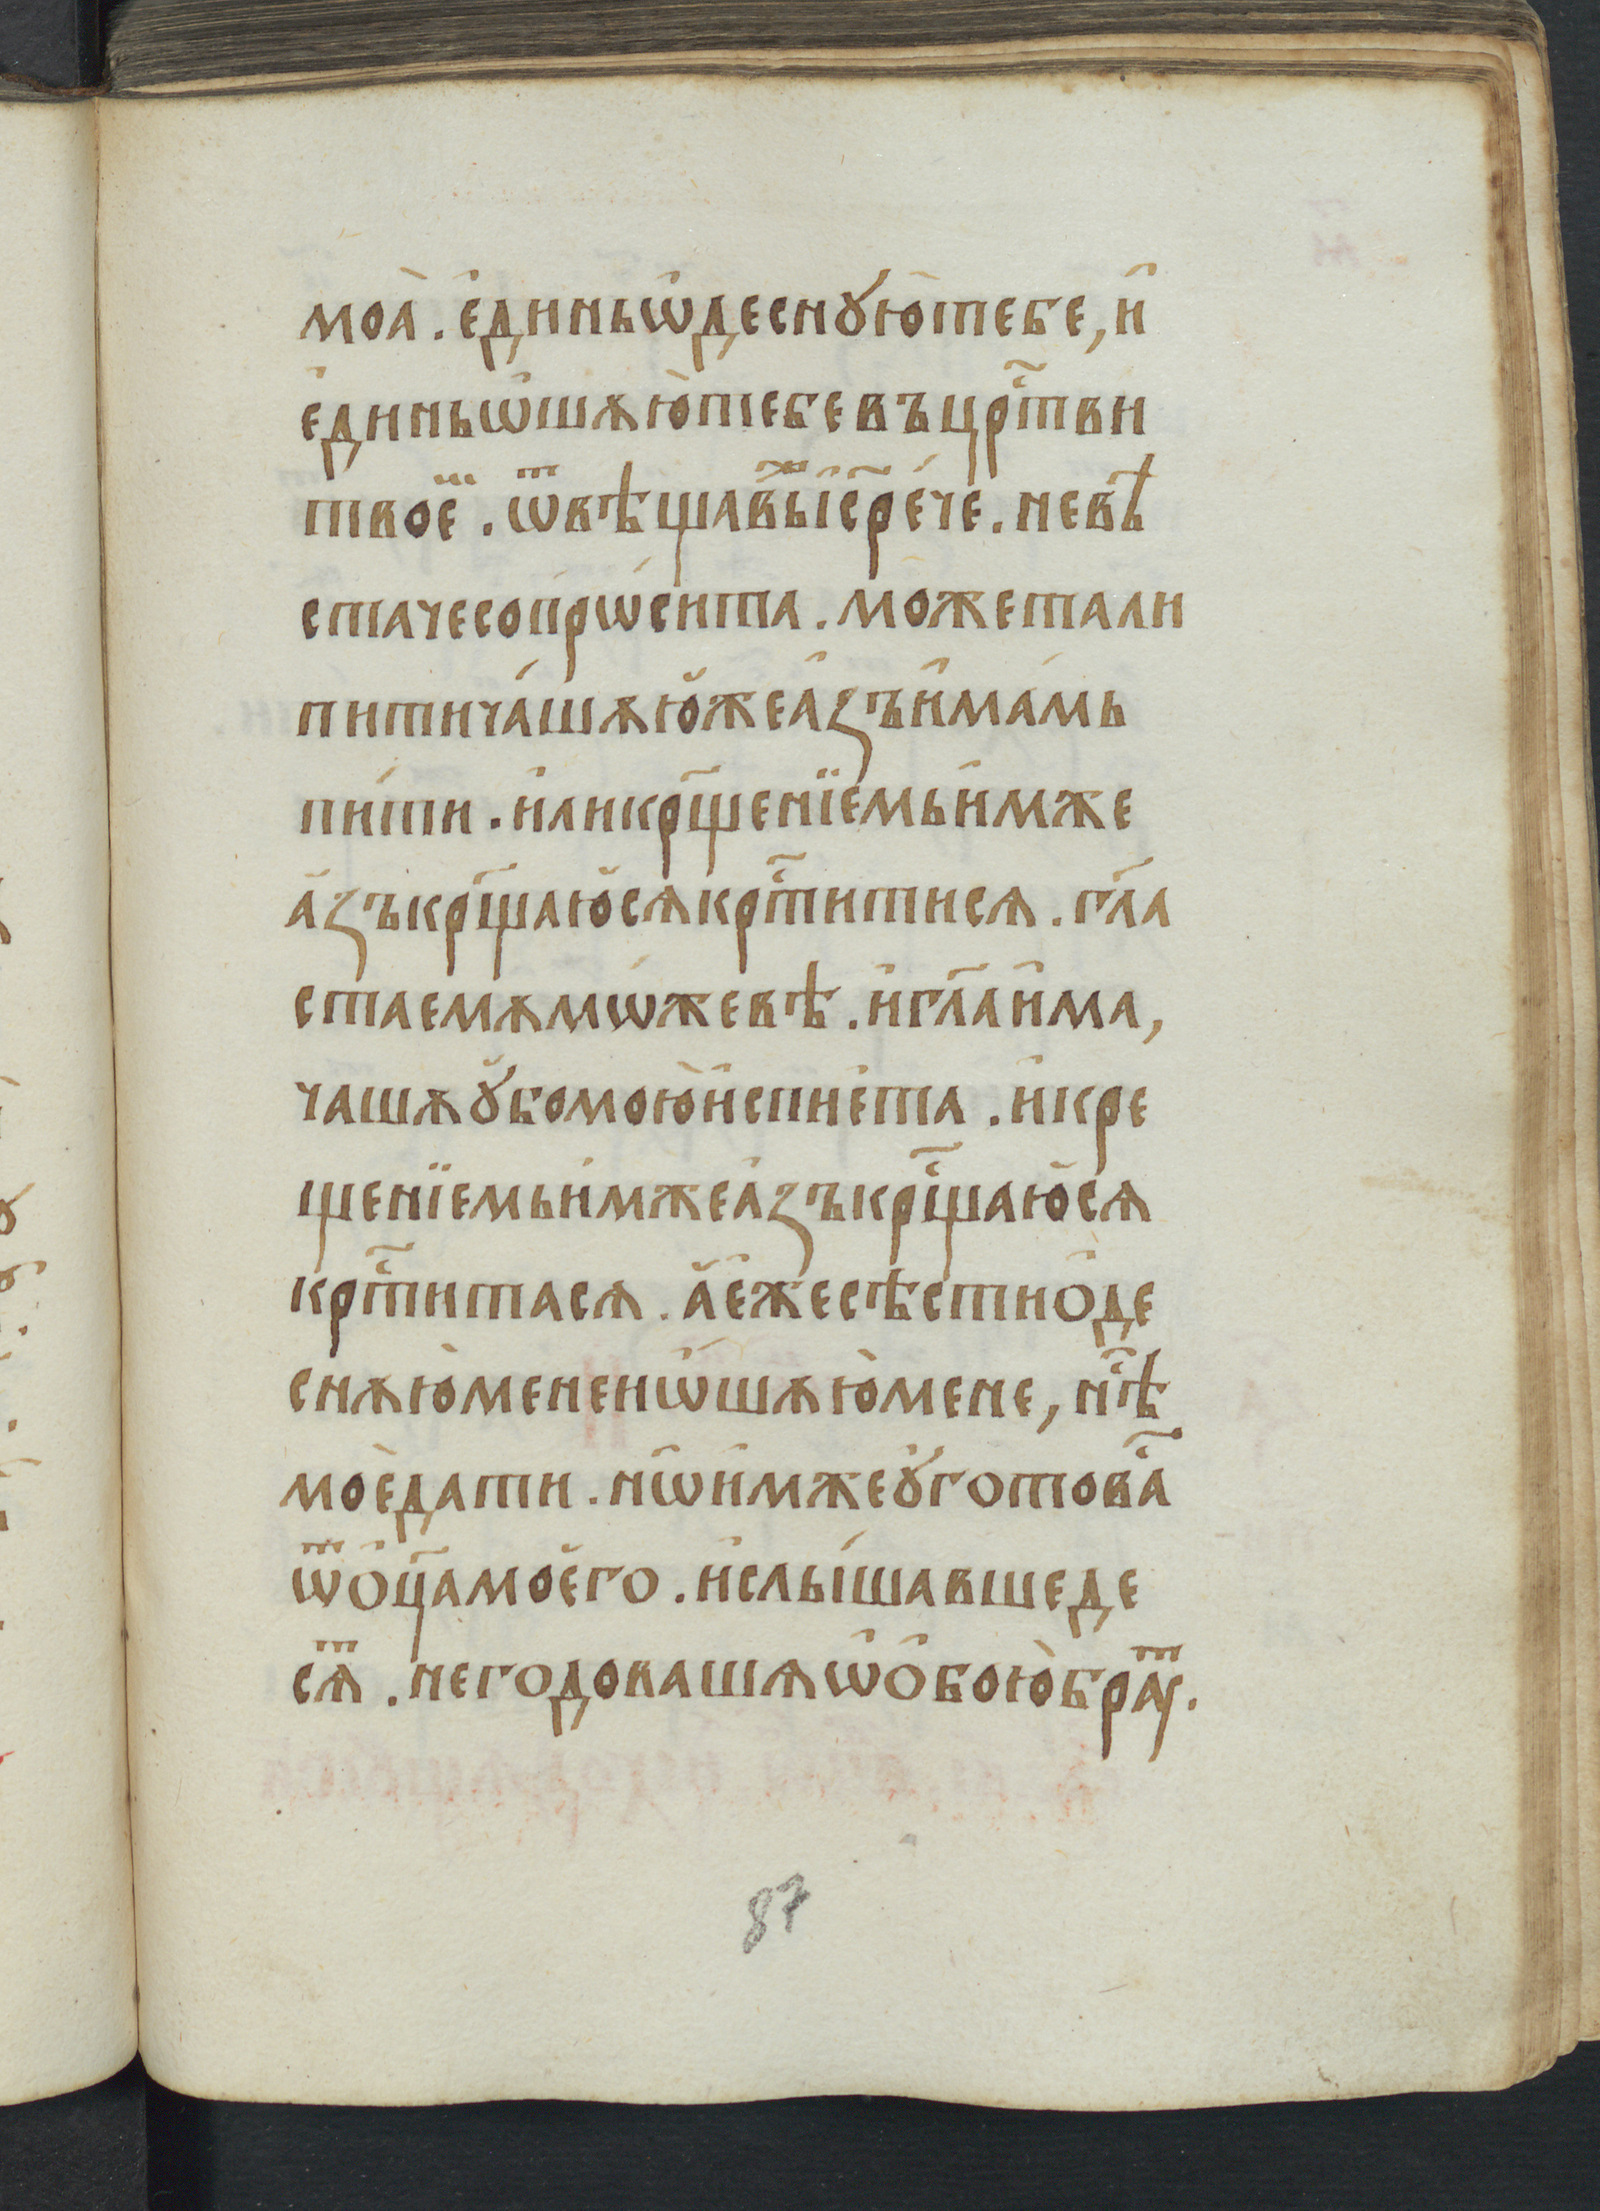 моа̀ . є҆динь ѡ҆деснꙋ́ю̀ тебе , и҆
є҆динь ѡ҆шѫю̀ тебе въ црⷭ҇тви
твоє̈ . ѿвѣщавⷤы і҆с҃ рѐче . невѣ́
ста чесо прѡ́сита . мо́жета ли
пити ча́шѫ ю҆же а҆зъ и҆ма́мь
пи́ти . и҆ли крⷭ҇щенїемь и҆мже
а҆зъ крⷭ҇щаю҆сѧ крⷭ҇титисѧ . гл҃а
ста емѫ мѡ́жевѣ . и҆ гл҃а и҆ма ,
чашѫ ᲂу҆бо мою̀ и҆спіета . и҆ кре
щенїемь и҆мже а҆зъ крⷭ҇щаю҆сѧ
крⷭ҇титасѧ . а҆ є҆же сѣсти ѻ҆де
снѫю̀ мене и ѡ҆шѫю̀ мене , нⷭ҇ѣ
моѐ дати . нѡ и҆мже ᲂу҆готовⷭ҇а
ѿ ѻ҆ц҃а моє҆го . и҆ слы́шавше де
сѧⷮ . негодовашѫ ѡ҆ ѻ҆бою̀ браⷮꙋ .
87